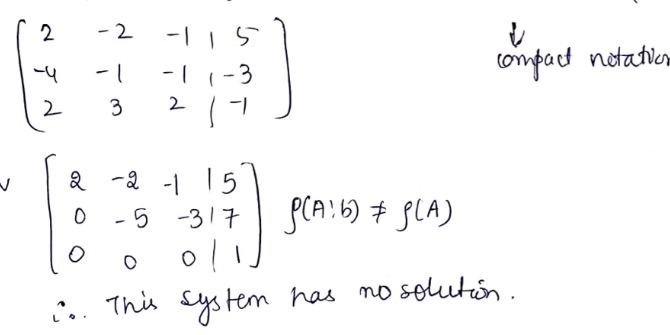 2 -2 -1 | 5
-4 -1 -1 | -3
2 3 2 | -1
↓
compact notation
~
2 -2 -1 | 5
0 -5 -3 | 7
0 0 0 | 1
ρ(A¦b) ≠ ρ(A)
∴ This system has no solution.